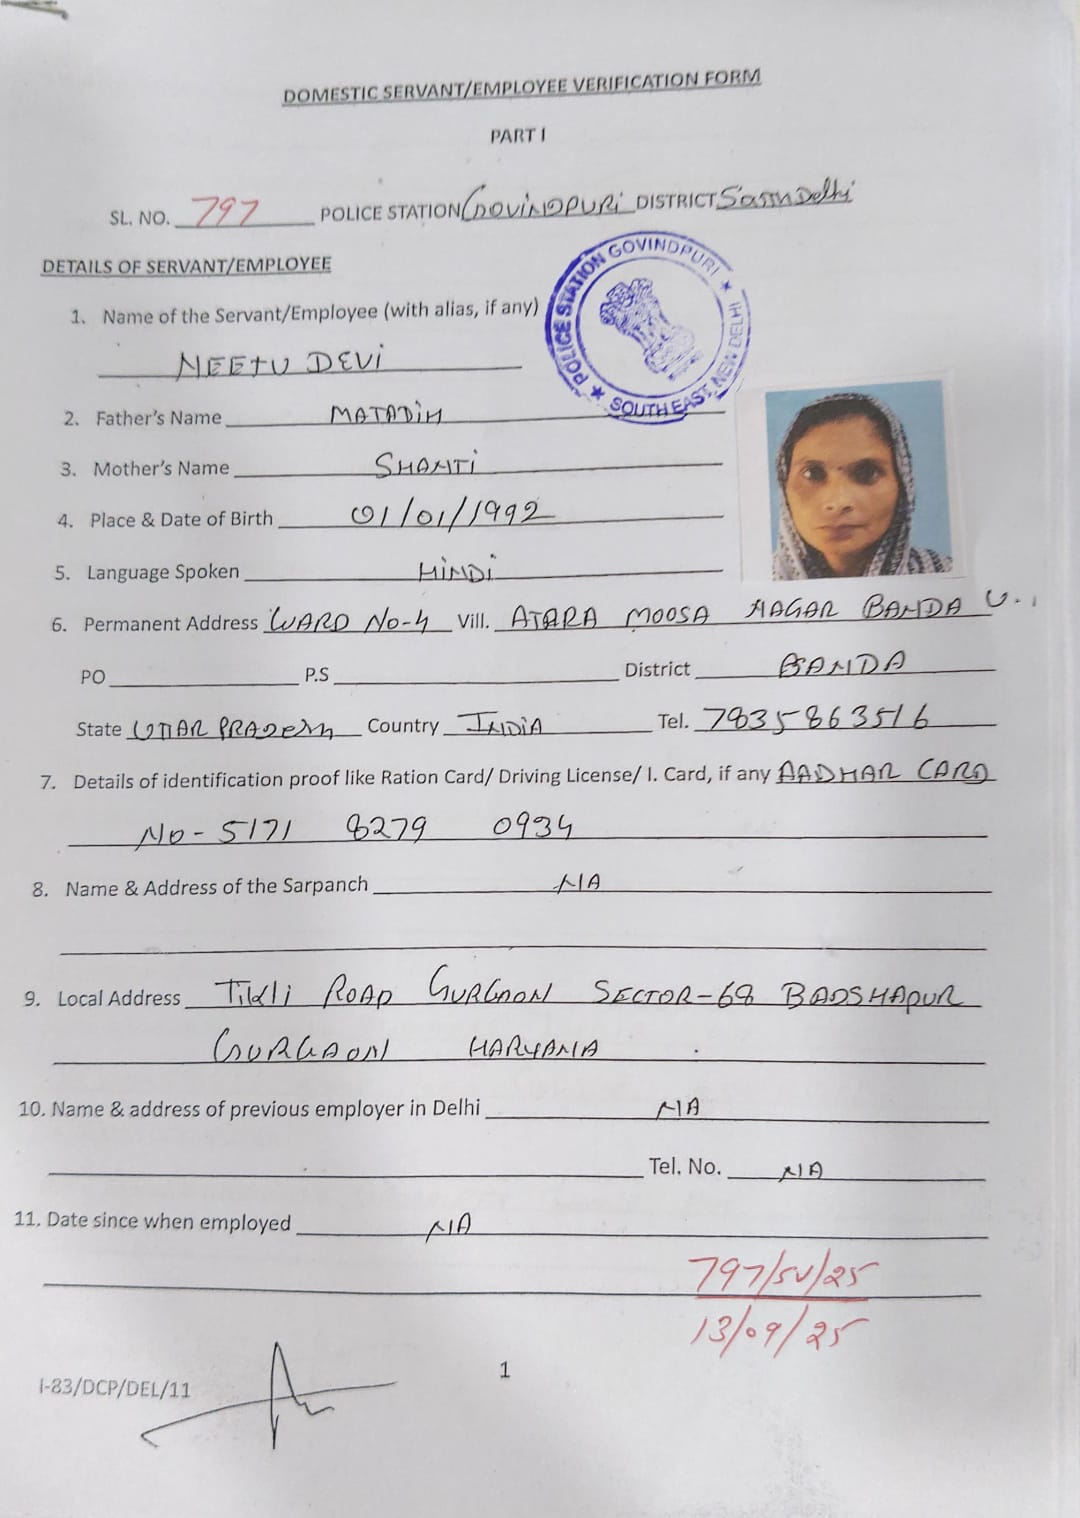 DOMESTIC SERVANT/EMPLOYEE VERIFICATION FORM
PART I
SL. NO. 797 POLICE STATION GOVINDPURI DISTRICT Delhi
DETAILS OF SERVANT/EMPLOYEE
POLICE STATION GOVINDPURI ★ SOUTH EAST, NEW DELHI ★
1. Name of the Servant/Employee (with alias, if any)
NEETU DEVI
2. Father's Name MATADIN
3. Mother's Name SHANTI
4. Place & Date of Birth 01/01/1992
5. Language Spoken HINDI
6. Permanent Address WARD No-4 Vill. ATARA MOOSA NAGAR BANDA U.
PO P.S District BANDA
State UTTAR PRADESH Country INDIA Tel. 7835863516
7. Details of identification proof like Ration Card/ Driving License/ I. Card, if any AADHAR CARD
No- 5171 8279 0934
8. Name & Address of the Sarpanch NIA
9. Local Address Tikli ROAD GURGAON SECTOR-68 BADSHAPUR
GURGAON HARYANA
10. Name & address of previous employer in Delhi NIA
Tel. No. NIA
11. Date since when employed NIA
797/SV/25
13/09/25
I-83/DCP/DEL/11
1